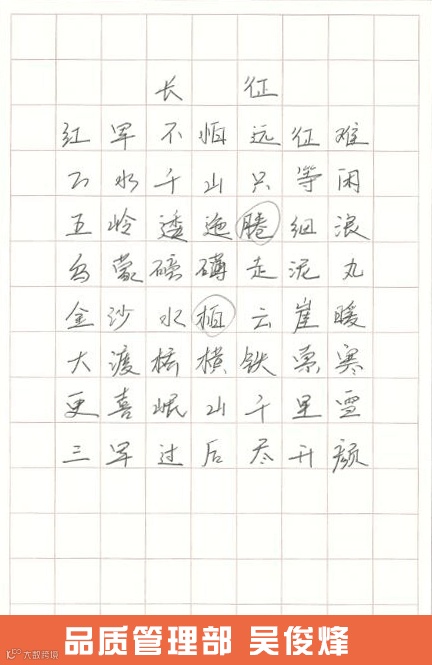 长征
红军不怕远征难
万水千山只等闲
五岭逶迤腾细浪
乌蒙磅礴走泥丸
金沙水拍云崖暖
大渡桥横铁索寒
更喜岷山千里雪
三军过后尽开颜
品质管理部 吴俊烽
大数跨境